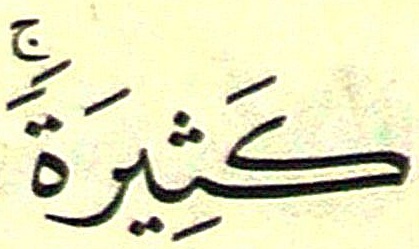 كَثِيرَةً ۚ